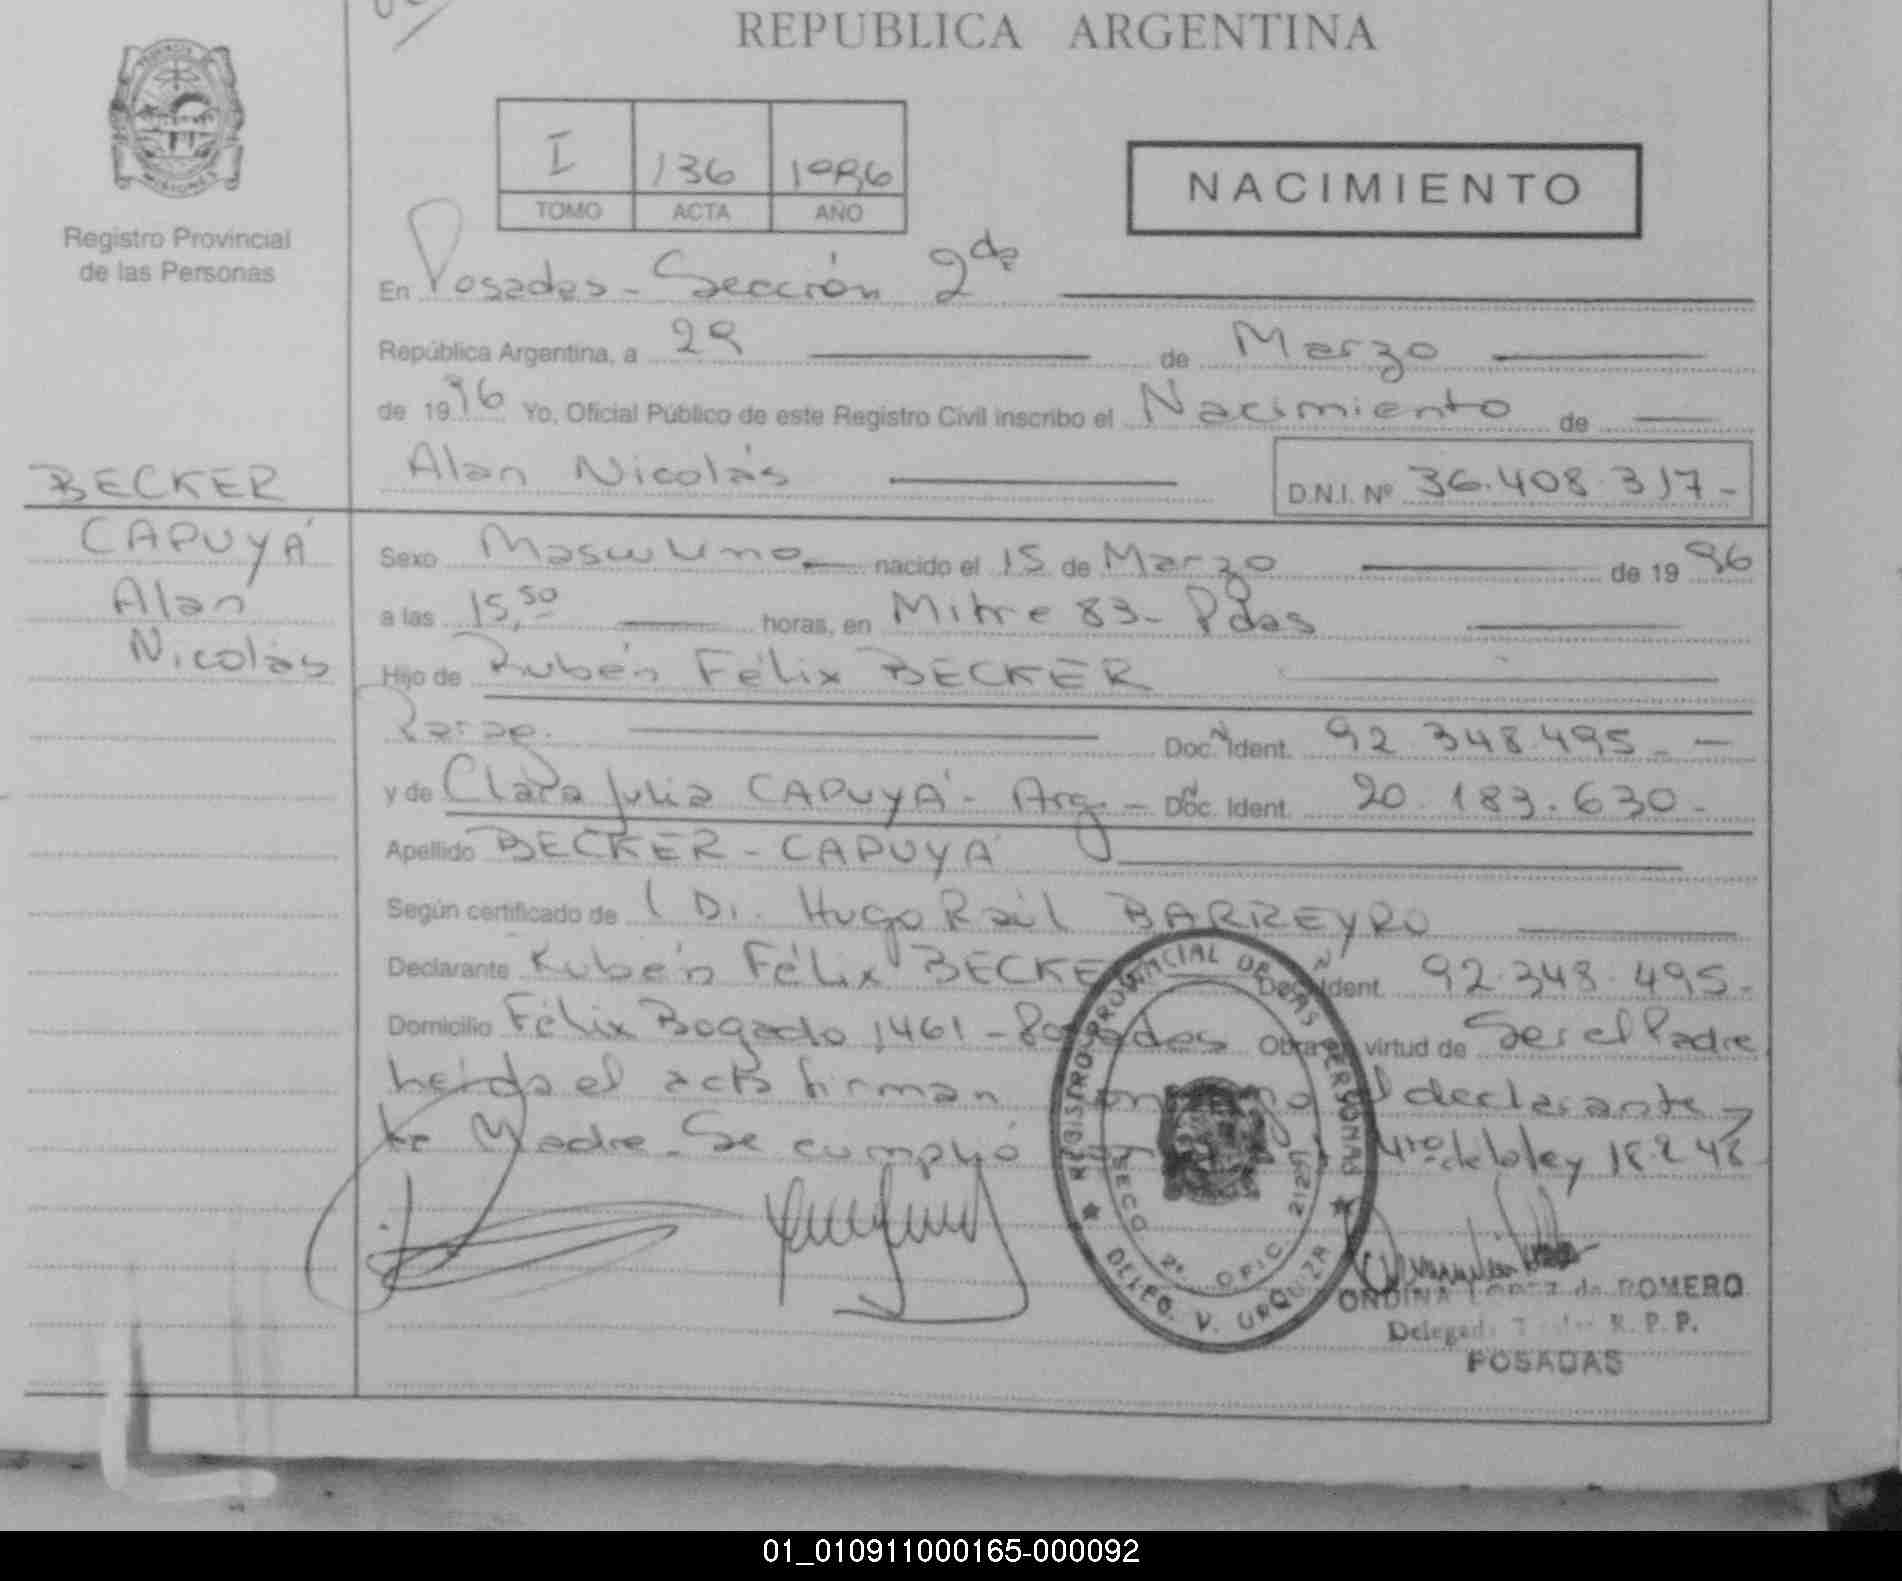 REPUBLICA ARGENTINA
PROVINCIA
MISIONES
Registro Provincial
de las Personas
I 136 1996
TOMO ACTA AÑO
NACIMIENTO
En Posadas - Sección 2da
República Argentina, a 29 de Marzo
de 1996 Yo, Oficial Público de este Registro Civil inscribo el Nacimiento de
Alan Nicolás D.N.I. Nº 36.408.317-
BECKER
CAPUYÁ
Alan
Nicolás
Sexo Masculino nacido el 15 de Marzo de 1996
a las 15,50 horas, en Mitre 83 - Pdas
Hijo de Rubén Félix BECKER
Parag. Doc. Ident. 92.348.495-
y de Clara Julia CAPUYÁ - Arg. - Doc. Ident. 20.183.630-
Apellido BECKER - CAPUYÁ
Según certificado de Dr. Hugo Raúl BARREYRO
Declarante Rubén Félix BECKER Doc. Ident. 92.348.495-
Domicilio Félix Bogado 1461 - Posadas Obra en virtud de Ser el Padre
Leída el acta firman conmigo el declarante y
la Madre. Se cumplió con el 4to de la ley 18248
REGISTRO PROVINCIAL DE LAS PERSONAS
SECC. 2º OFIC. 2125
DELEG. V. URQUIZA
ONDINA LOPEZ de ROMERO
Delegada R. P. P.
POSADAS
01_010911000165-000092